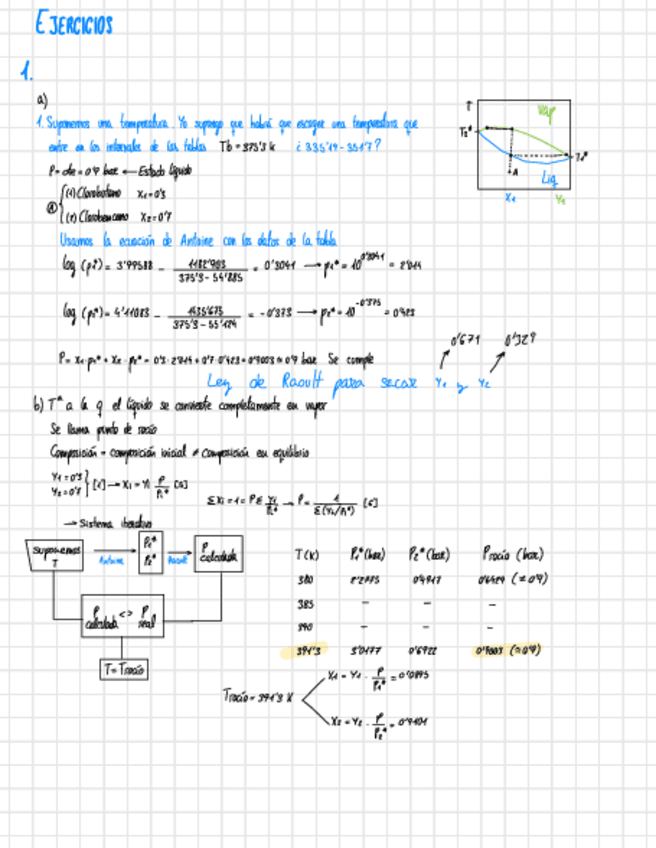 EJERCICIOS
1.
a)
1. Suponemos una temperatura. Yo supongo que habrá que escoger una temperatura que
entre en los intervalos de las tablas Tb = 375'3 K
P = cte = 0'9 bar ← Estado líquido
(1) Clorobutano X1 = 0'3
(2) Clorobenceno X2 = 0'7
T
Vap
T2*
T1*
A
Liq
X1
Y1
Usamos la ecuación de Antoine con los datos de la tabla
log (p1*) = 3'99588 - 1182'903 / 375'3 - 54'885 = 0'3041 → p1* = 10^0'3041 = 2'014
log (p2*) = 4'11083 - 1435'675 / 375'3 - 55'124 = -0'373 → p2* = 10^-0'373 = 0'423
0'671 0'329
P = X1 · p1* + X2 · p2* = 0'3 · 2'014 + 0'7 · 0'423 = 0'9003 ≈ 0'9 bar Se cumple
Ley de Raoult para sacar Y1 y Y2
b) Tª a la q el líquido se convierte completamente en vapor
Se llama punto de rocío
Composición = composición inicial ≠ composición en equilibrio
Y1 = 0'3
Y2 = 0'7
[1] → Xi = Yi P / Pi* [5]
ΣXi = 1 = P Σ Yi / Pi* → P = 1 / Σ(Yi/Pi*) [6]
→ Sistema iterativo
Suponemos T
Antoine
P1*
P2*
Raoult
P calculada
P calculada <> P real
T = Trocío
T (K) P1* (bar) P2* (bar) Procío (bar)
380 2'2775 0'4917 0'6429 (≠ 0'9)
385 - - -
390 - - -
391'3 3'0177 0'6922 0'9003 (≈ 0'9)
Trocío = 391'3 K
X1 = Y1 · P / P1* = 0'0895
X2 = Y2 · P / P2* = 0'9101